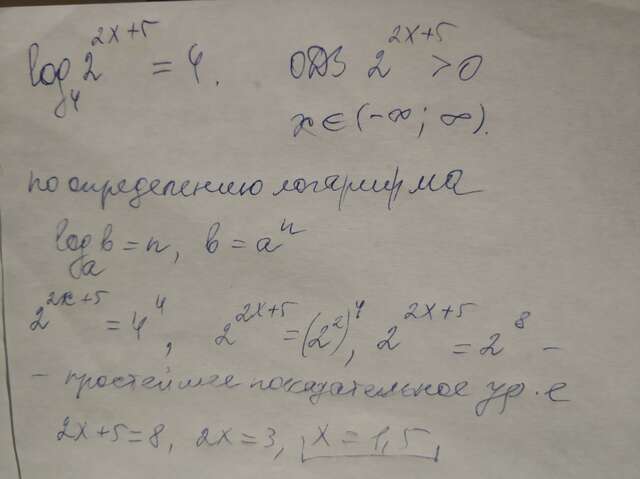 log₄ 2^(2x+5) = 4. ОДЗ 2^(2x+5) > 0
x ∈ (-∞; ∞).
по определению логарифма
logₐ b = n, b = aⁿ
2^(2x+5) = 4⁴, 2^(2x+5) = (2²)⁴, 2^(2x+5) = 2⁸ –
– простейшее показательное ур-е
2x+5=8, 2x=3, x=1,5